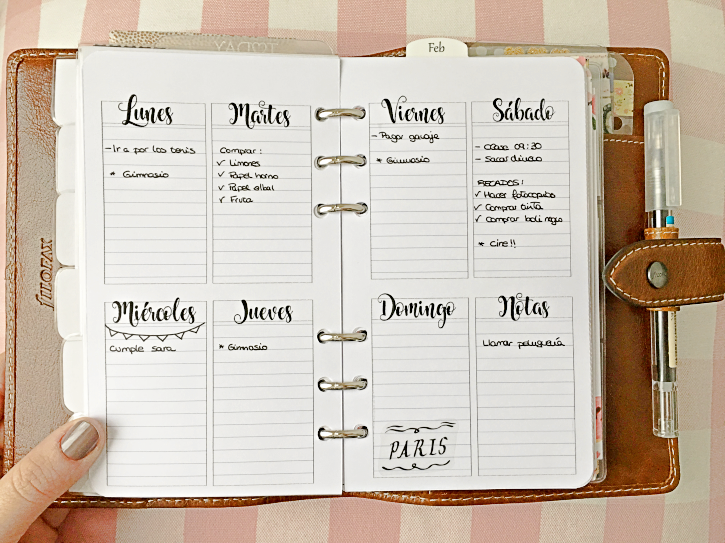 Feb
Lunes
-Ir a por los tenis
* Gimnasio
Martes
Comprar:
✓ Limones
✓ Papel horno
✓ Papel albal
✓ Fruta
Miércoles
Cumple sara
Jueves
* Gimnasio
Viernes
- Pagar garaje
* Gimnasio
Sábado
- Clase 09:30
- Sacar dinero
RECADOS:
✓ Hacer fotocopias
✓ Comprar tinta
✓ Comprar boli negro
* Cine!!
Domingo
PARIS
Notas
Llamar peluquería
filofax